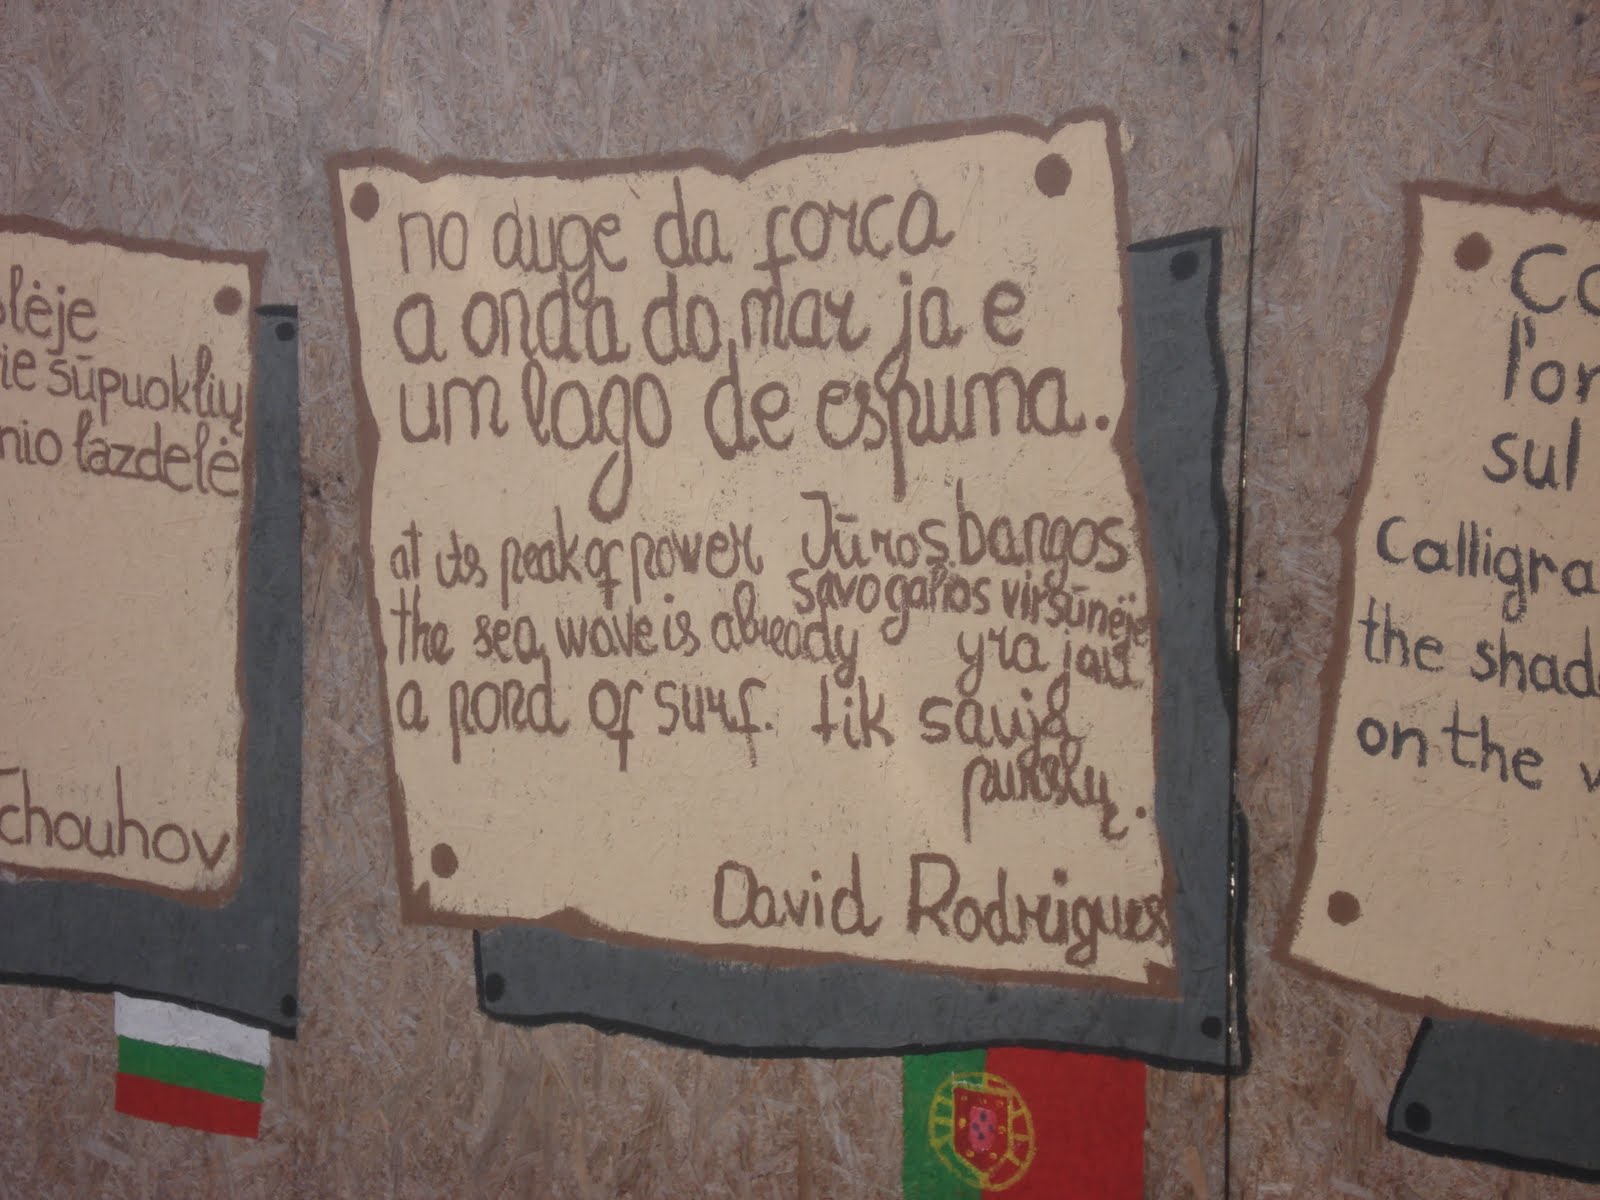 lėje
sūpuoklių
nio lazdelė
Tchouhov
no auge da forca
a onda do mar ja e
um lago de espuma.
at its peak of power
the sea wave is already
a pond of surf.
Jūros bangos
savo galios viršūnėje
yra jau
tik sauja
purslų.
David Rodrigues
Co
l'or
sul
Calligra
the shad
on the